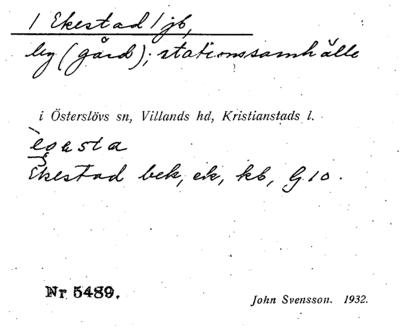 1 Ekestad 1 jb,
by (gård); stationssamhälle
i Österslövs sn, Villands hd, Kristianstads l.
Ekestad bek, ek, kb, G 10.
Nr 5489.
John Svensson. 1932.